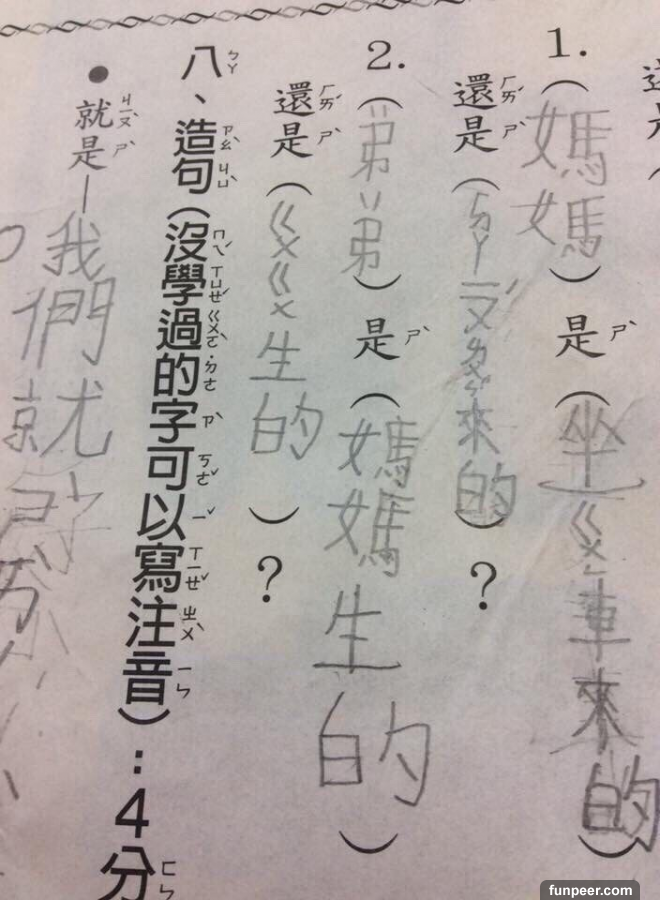 1.(媽媽)是(坐ㄍㄨ車來的)
還是(來的)?
2.(弟弟)是(媽媽生的)
還是(ㄍㄨㄍㄨ生的)?
八、造句(沒學過的字可以寫注音):4分
●就是—我們就
funpeer.com